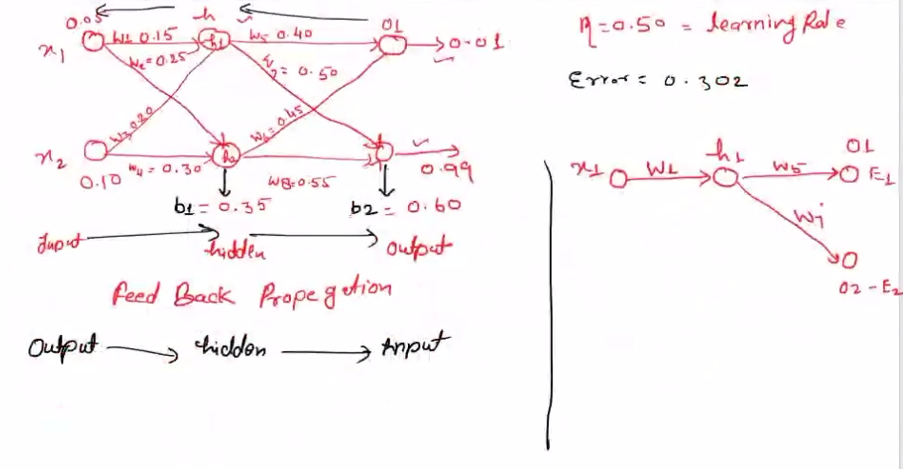 0.05
x1
W1 0.15
h
h1
W5 0.40
O1
0.01
W2=0.25
W7= 0.50
W3 0.20
W6=0.45
x2
0.10
W4=0.30
h2
W8=0.55
0.99
b1=0.35
b2=0.60
Input
hidden
output
Feed Back Propegetion
Output
hidden
Input
η=0.50 = learning Rate
Error = 0.302
x1
W1
h1
W5
O1
E1
Wj
O2-E2